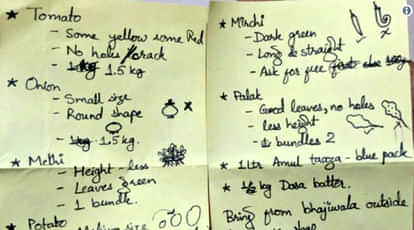 ★ Tomato
- Some yellow some Red
- No holes / crack
- 1.5 kg
★ Onion
- Small size
- Round shape
- 1.5 kg.
★ Methi
- Height - less
- Leaves green
- 1 bundle.
★ Potato
size
★ Mirchi
- Dark green
- Long & straight
- Ask for free
★ Palak
- Good leaves, no holes
- less height
- bundles 2
★ 1 Ltr Amul taaza - blue pack
★ kg Dosa batter.
Bring from bhajiwala outside